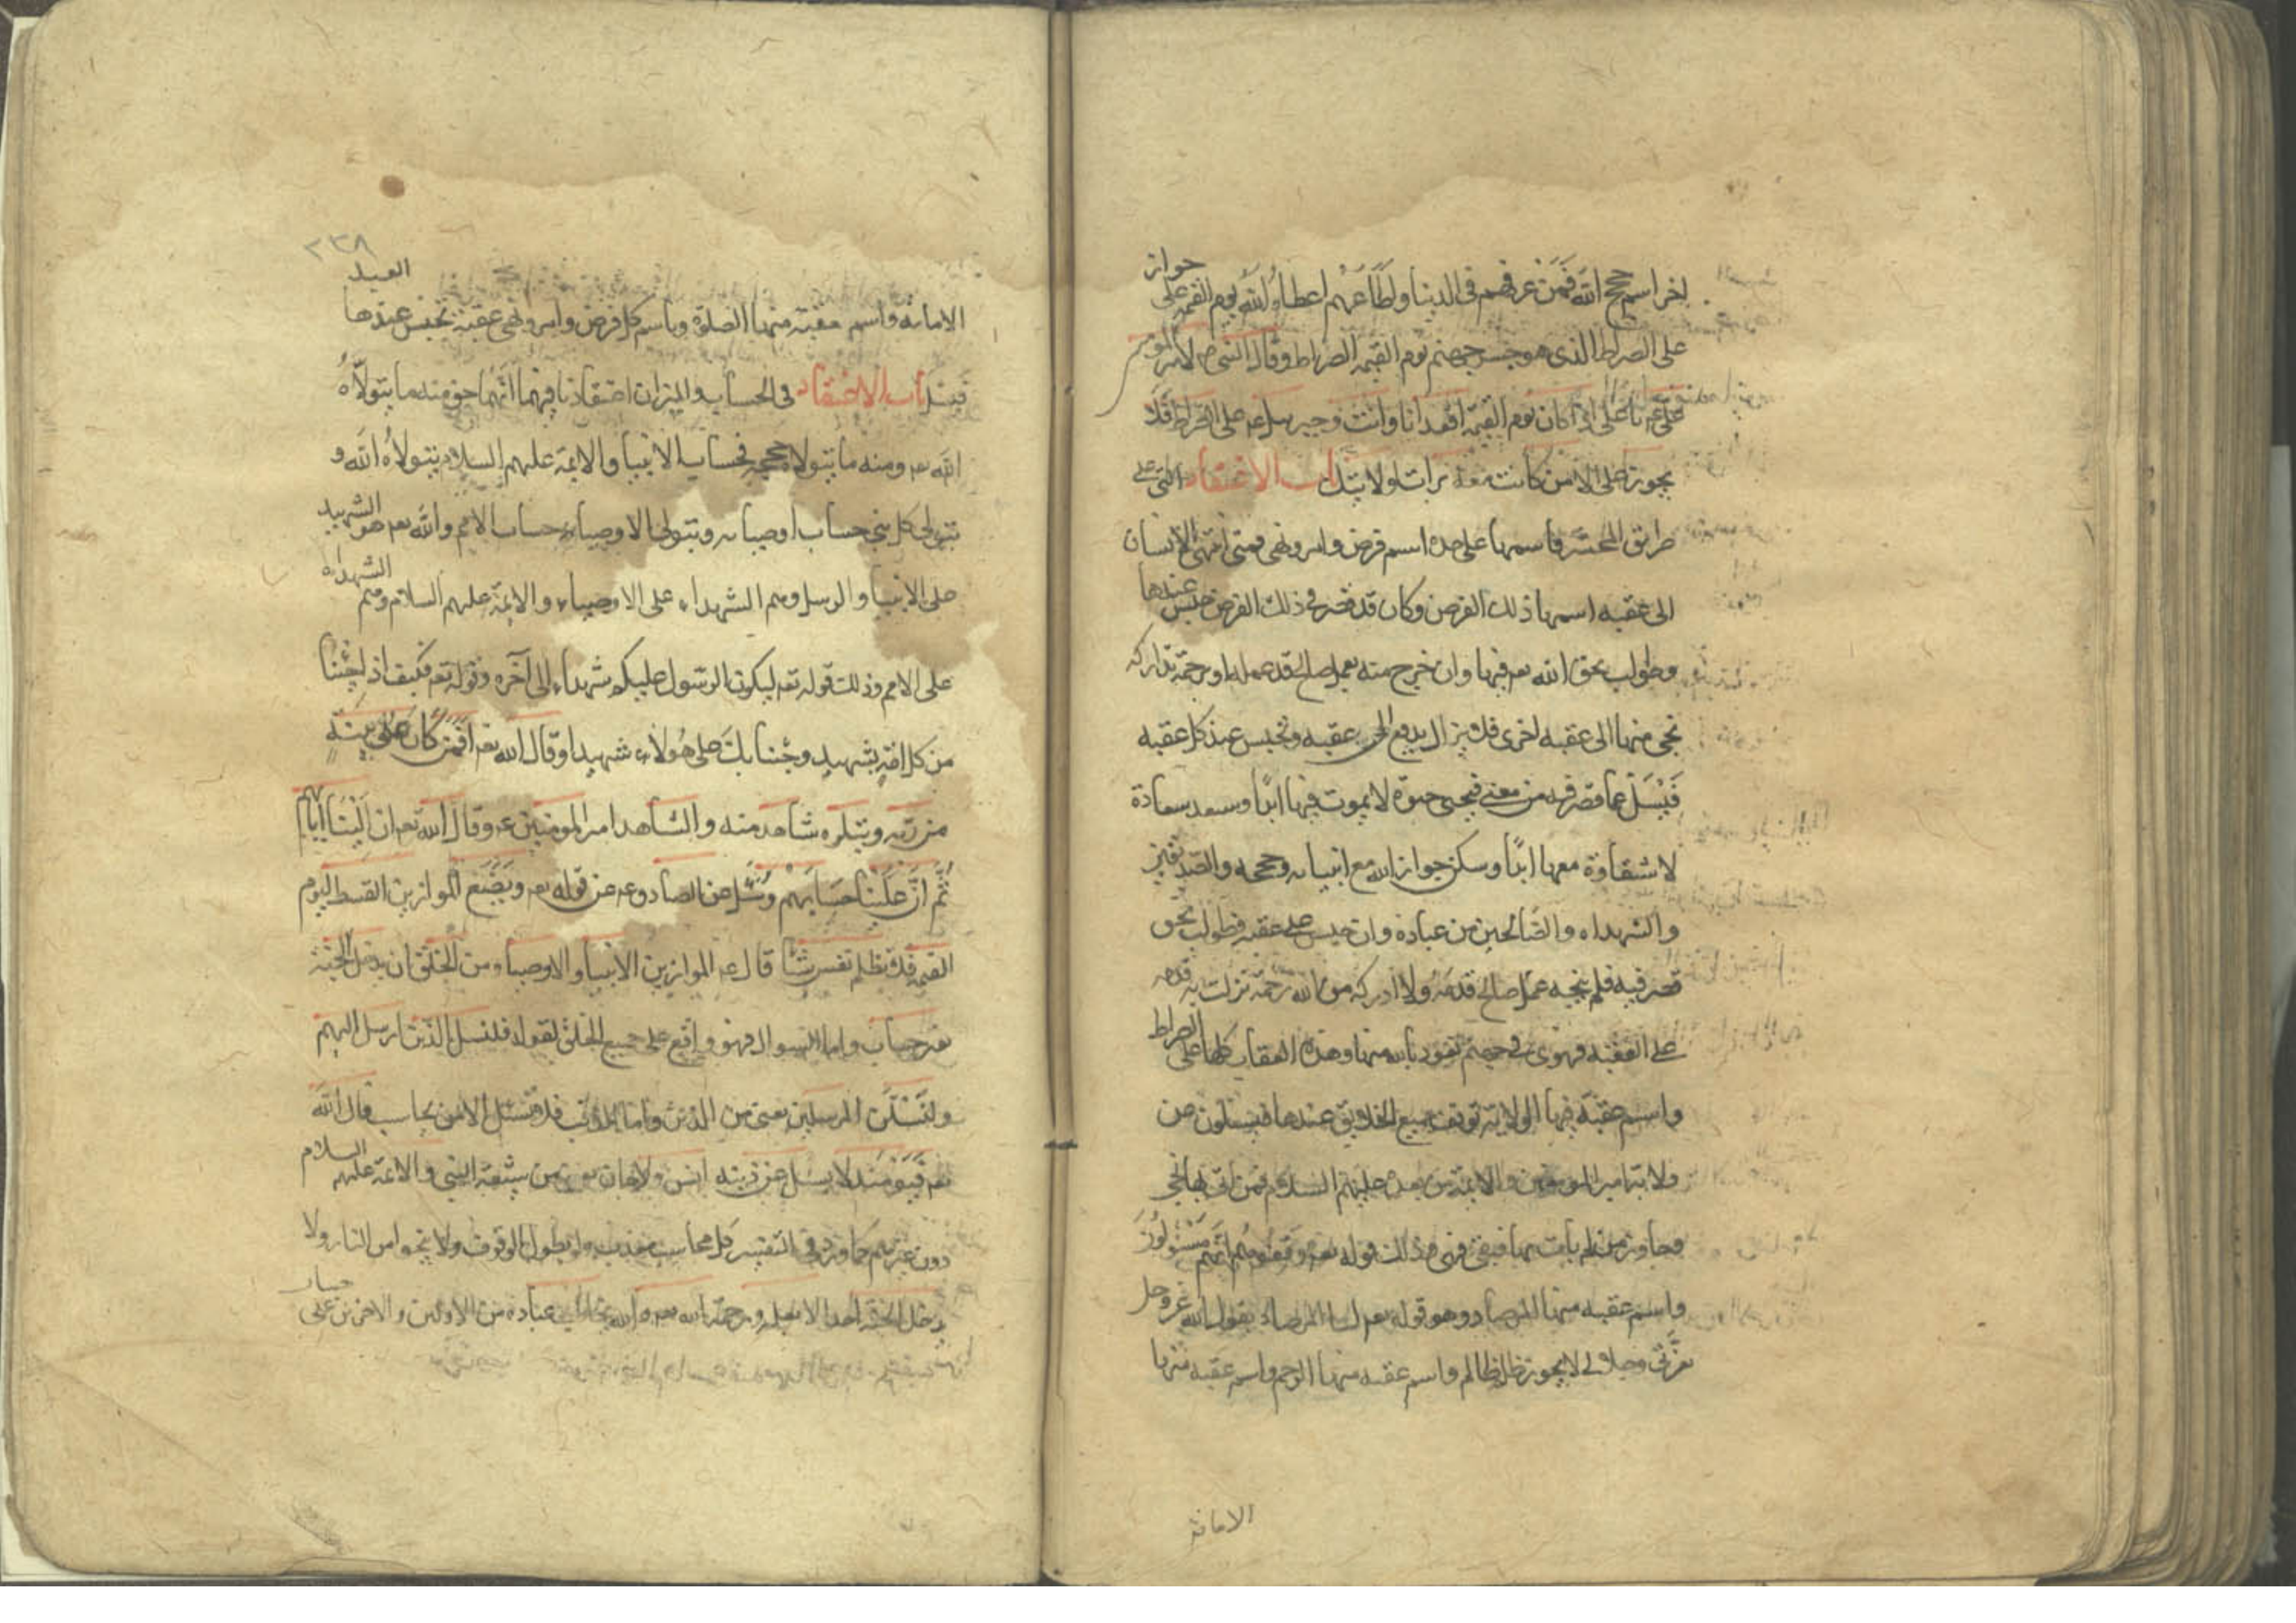 اخر اسم حجج الله فمن عرفهم في الدنيا واطاعهم اعطاه الله يوم القيمة على جواز
على الصراط الذي هو جسر جهنم يوم القيمة الصراط وقال النبي ص لامير المومنين
على ع يا على اذا كان يوم القيمة اقعد انا وانت وجبرئيل ع على الصراط فلا
يجوز على الا من كانت معه براة ولايتك باب الاعتقاد التي على
طريق المحشر فاسمها على حده اسم فرض وامر ونهى فمتى انتهى الانسان
الى عقبه اسمها ذلك الفرض وكان قد قصر في ذلك الفرض حبس عندها
وطولب بحق الله تع فيها وان خرج منه بعمل صالح قد عمله او برحمة تداركه
نجى منها الى عقبه اخرى فلا يزال يدفع الى عقبه ويحبس عند كل عقبه
فيسئل عما قصر فيه من معنى فيحيى حيوة لا يموت فيها ابدًا وسعد سعادة
لا شقاوة معها ابدًا وسكن جوار الله مع انبيائه وحججه والصديقين
والشهداء والصالحين من عباده وان حبس على عقبه فطولب بحق
قصر فيه فلم ينجه عمل صالح قدمه ولا ادركه من الله رحمة نزلت به قدمه
على العقبه فهوى في جهنم نعوذ بالله منها وهذه العقاب كلها على الصراط
واسم عقبة فيها الولاية توقف جميع الخلايق عندها فيسئلون عن
ولاية امير المومنين والايمة من بعده عليهم السلام فمن اتى بها نجى
وجاوز ومن لم يات بها فبقى فهوى وذلك قوله تع وقفوهم انهم مسئولون
واسم عقبه منها المرصاد وهو قوله تع لبا المرصاد يقول الله عز وجل
بعزتي وجلالي لا يجوز ظلم ظالم واسم عقبه منها الرحم واسم عقبه منها
الامانة
٢٣٨
الامانة واسم عقبة منها الصلوة وباسم كل فرض وامر ونهى عقبة تحبس عندها العبد
فيسئل باب الاعتقاد في الحساب والميزان اعتقادنا فيهما انهما حق منه ما يتولاه
الله تع ومنه ما يتولاه حججه فحساب الانبيا والايمة عليهم السلام يتولاه الله و
يتولى كل نبي حساب اوصيائه ويتولى الاوصياء حساب الامم والله تع هو الشهيد
على الانبيا والرسل وهم الشهداء على الاوصياء والايمة عليهم السلام وهم الشهداء
على الامم وذلك قوله تع ليكون الرسول عليكم شهداء الى آخره وقوله تع فكيف اذا جئنا
من كل امة بشهيد وجئنا بك على هؤلاء شهيدا وقال الله تع افمن كان على بينة
من ربه ويتلوه شاهد منه والشاهد امير المومنين ع وقال الله تع ان الينا ايابهم
ثم ان علينا حسابهم وسئل عن الصادق ع عن قوله تع ونضع الموازين القسط ليوم
القيمة فلا تظلم نفس شيئا قال ع الموازين الانبيا والاوصياء ومن الخلق ان يدخل الجنة
بغير حساب واما السوال فهو واقع على جميع الخلق لقوله فلنسئلن الذين ارسل اليهم
ولنسئلن المرسلين يعنى من الدين واما الذنب فلا يسئل الا من يحاسب قال الله
تع فيومئذ لا يسئل عن ذنبه انس ولا جان يعنى من شيعة النبي والائمة عليهم السلام
دون غيرهم كما ورد في التفسير كل محاسب معذب ولو بطول الوقوف ولا ينجوا من النار ولا
يدخل الجنة احد الا بعمله وبرحمة الله تع والله يخاطب عباده من الاولين والاخرين على حساب